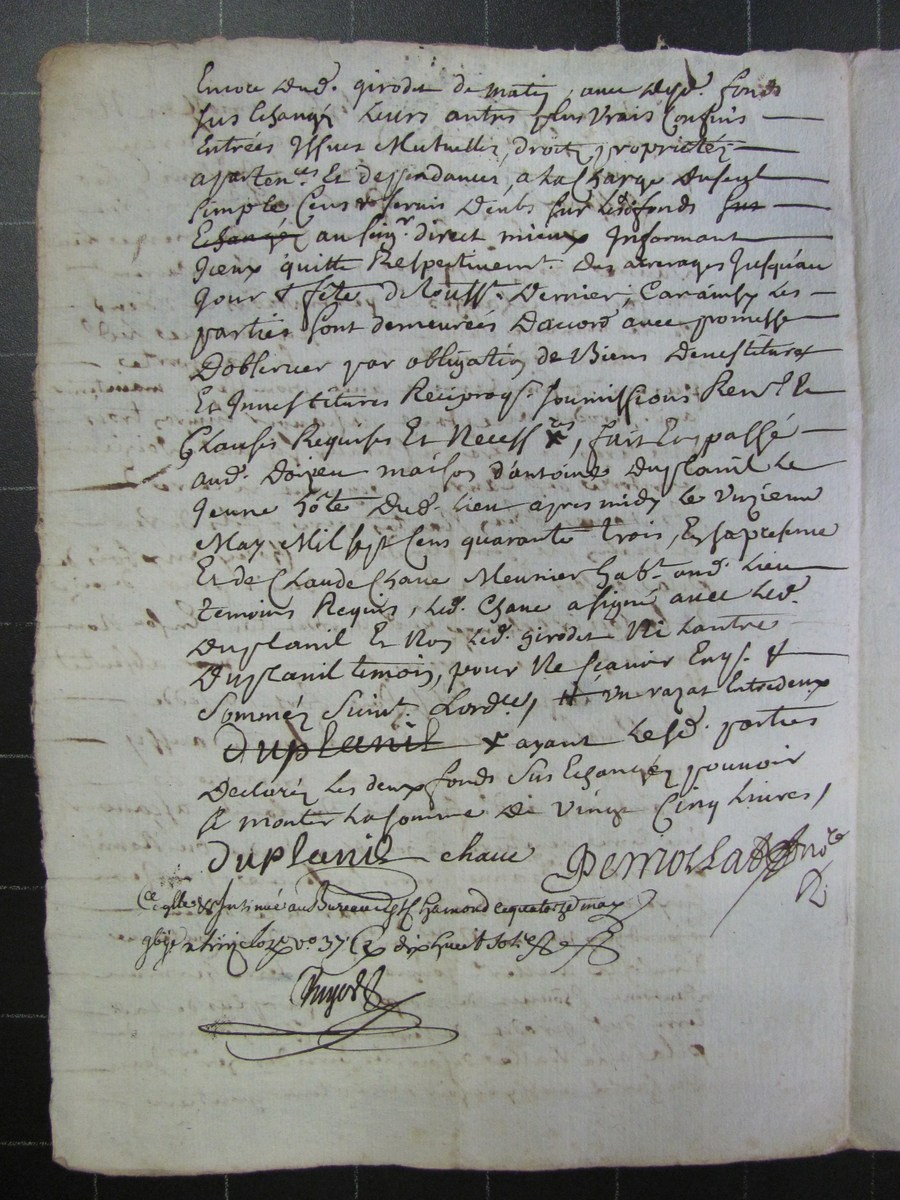 Encore dud. girodet de matin, avec lesd. fonds
sus Echangés Leurs autres plus vrais Confins
Entrées Yssues Mutuelles, droits, proprietés
aparten.ces Et deppendances, a La Charge du seul
simple Cens & servis Deubs sur lesd. fonds sus
Echangés au seig.r direct mieux Informant
Iceux quitte Respectivement. des arrerages Jusqu'au
Jour & fête de Touss. Dernier, Car ainsy Les
parties sont demeurées D'acord avec promesse
D'observer par obligation de Biens Devestiture
Et Investitures Reciproq.s soumissions Ren. Et
Clauses Requises Et Necess.res, fait Et passé
aud. maison d'antoine Duplanil Le
Jeune hôte Dud. Lieu apres midy le unzieme
May Mil sept Cens quarante trois, En sa presence
Et de Claude Chave Meunier hab.t aud. Lieu
temoins Requis, led. Chave a signé avec Led.
Duplanil Et Non led. girodet Ni Lautre
Duplanil temoin, pour Ne scavoir Enq. &
Sommés Suivt. Lord.ce, # un razat Entredeux
Duplanil x ayant Lesd. parties
Declarés Les deux fonds Sus Echangés pouvoir
se monter La somme de Vingt Cinq Livres,
Duplanil chave no.re
au Bureau de may
dix huit sols